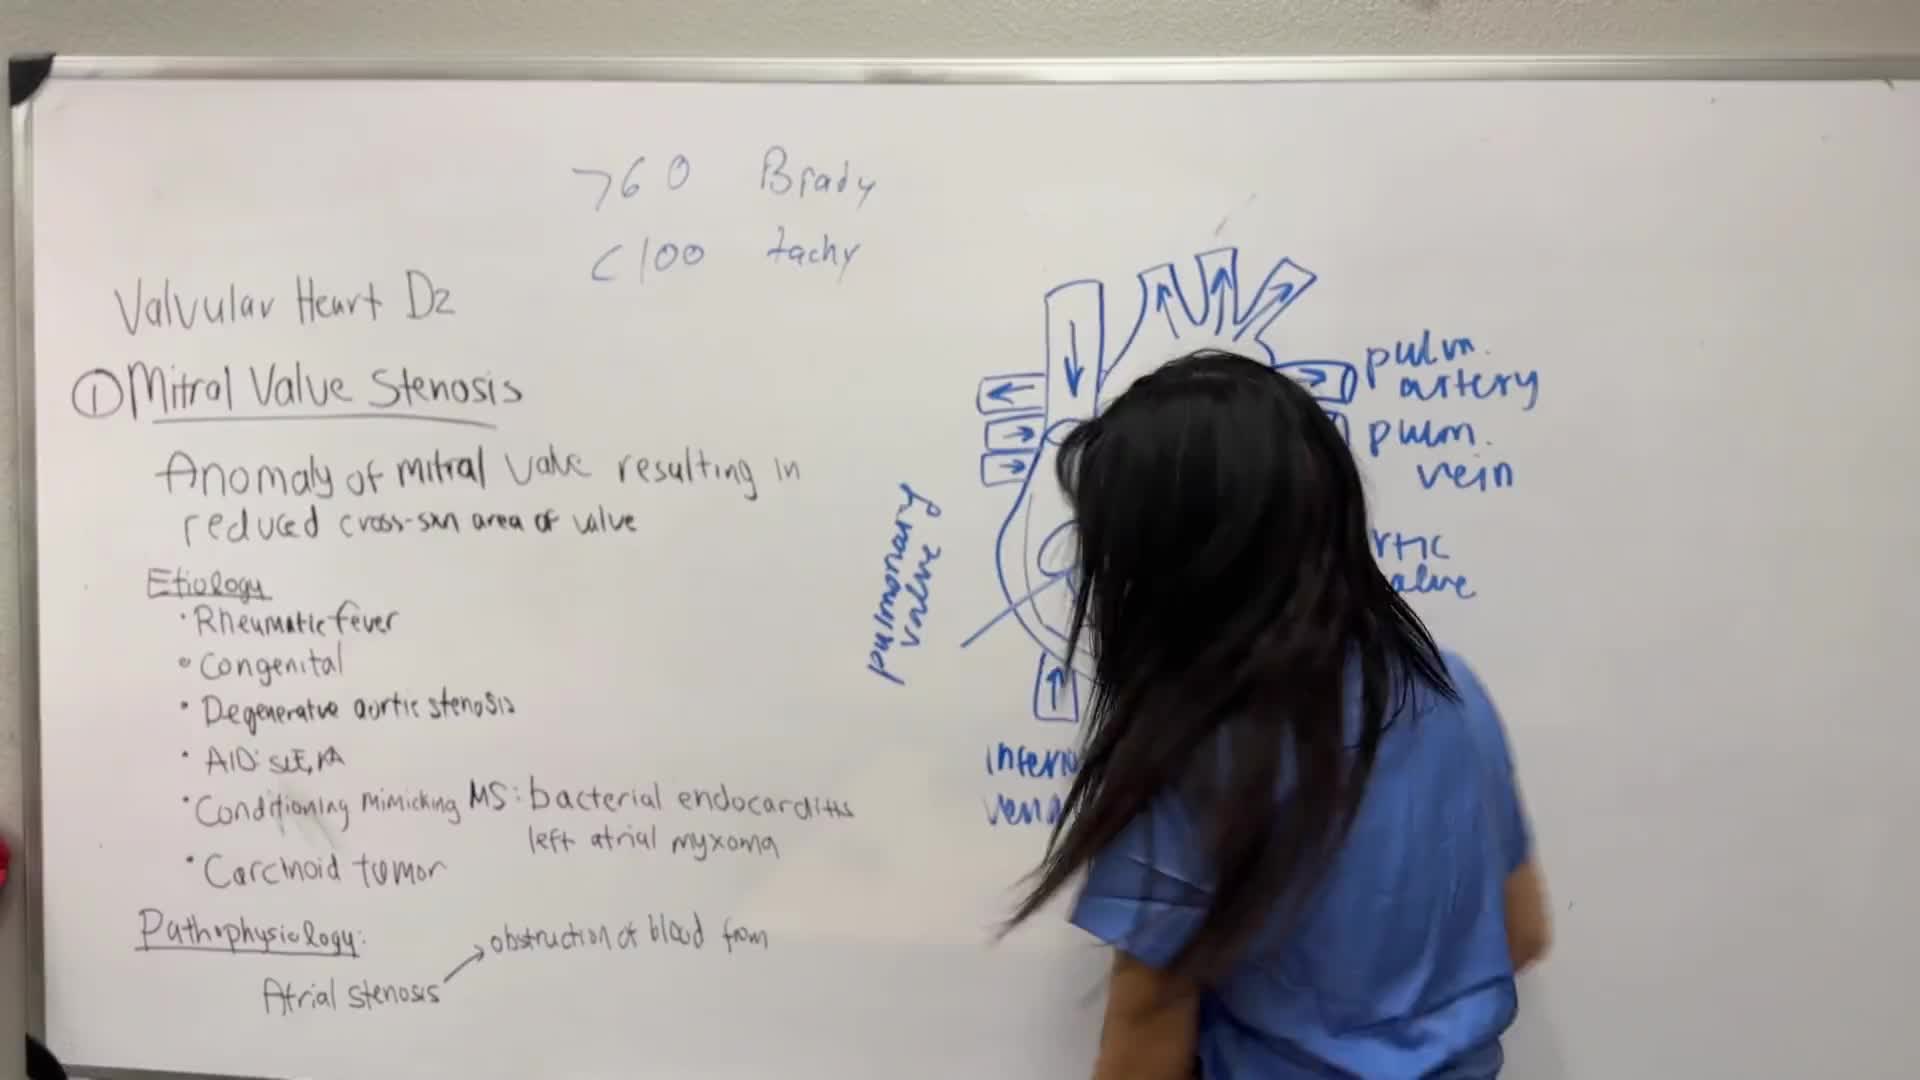 >60 Brady
<100 tachy
Valvular Heart Dz
① Mitral Valve Stenosis
Anomaly of mitral valve resulting in
reduced cross-sxn area of valve
Etiology
• Rheumatic fever
• Congenital
• Degenerative aortic stenosis
• AID: SLE, RA
• Conditioning mimicking MS: bacterial endocarditis
left atrial myxoma
• Carcinoid tumor
Pathophysiology:
Atrial stenosis → obstruction of blood from
pulm.
artery
pulm.
vein
rtic
alve
pulmonary
valve
inferio
vena